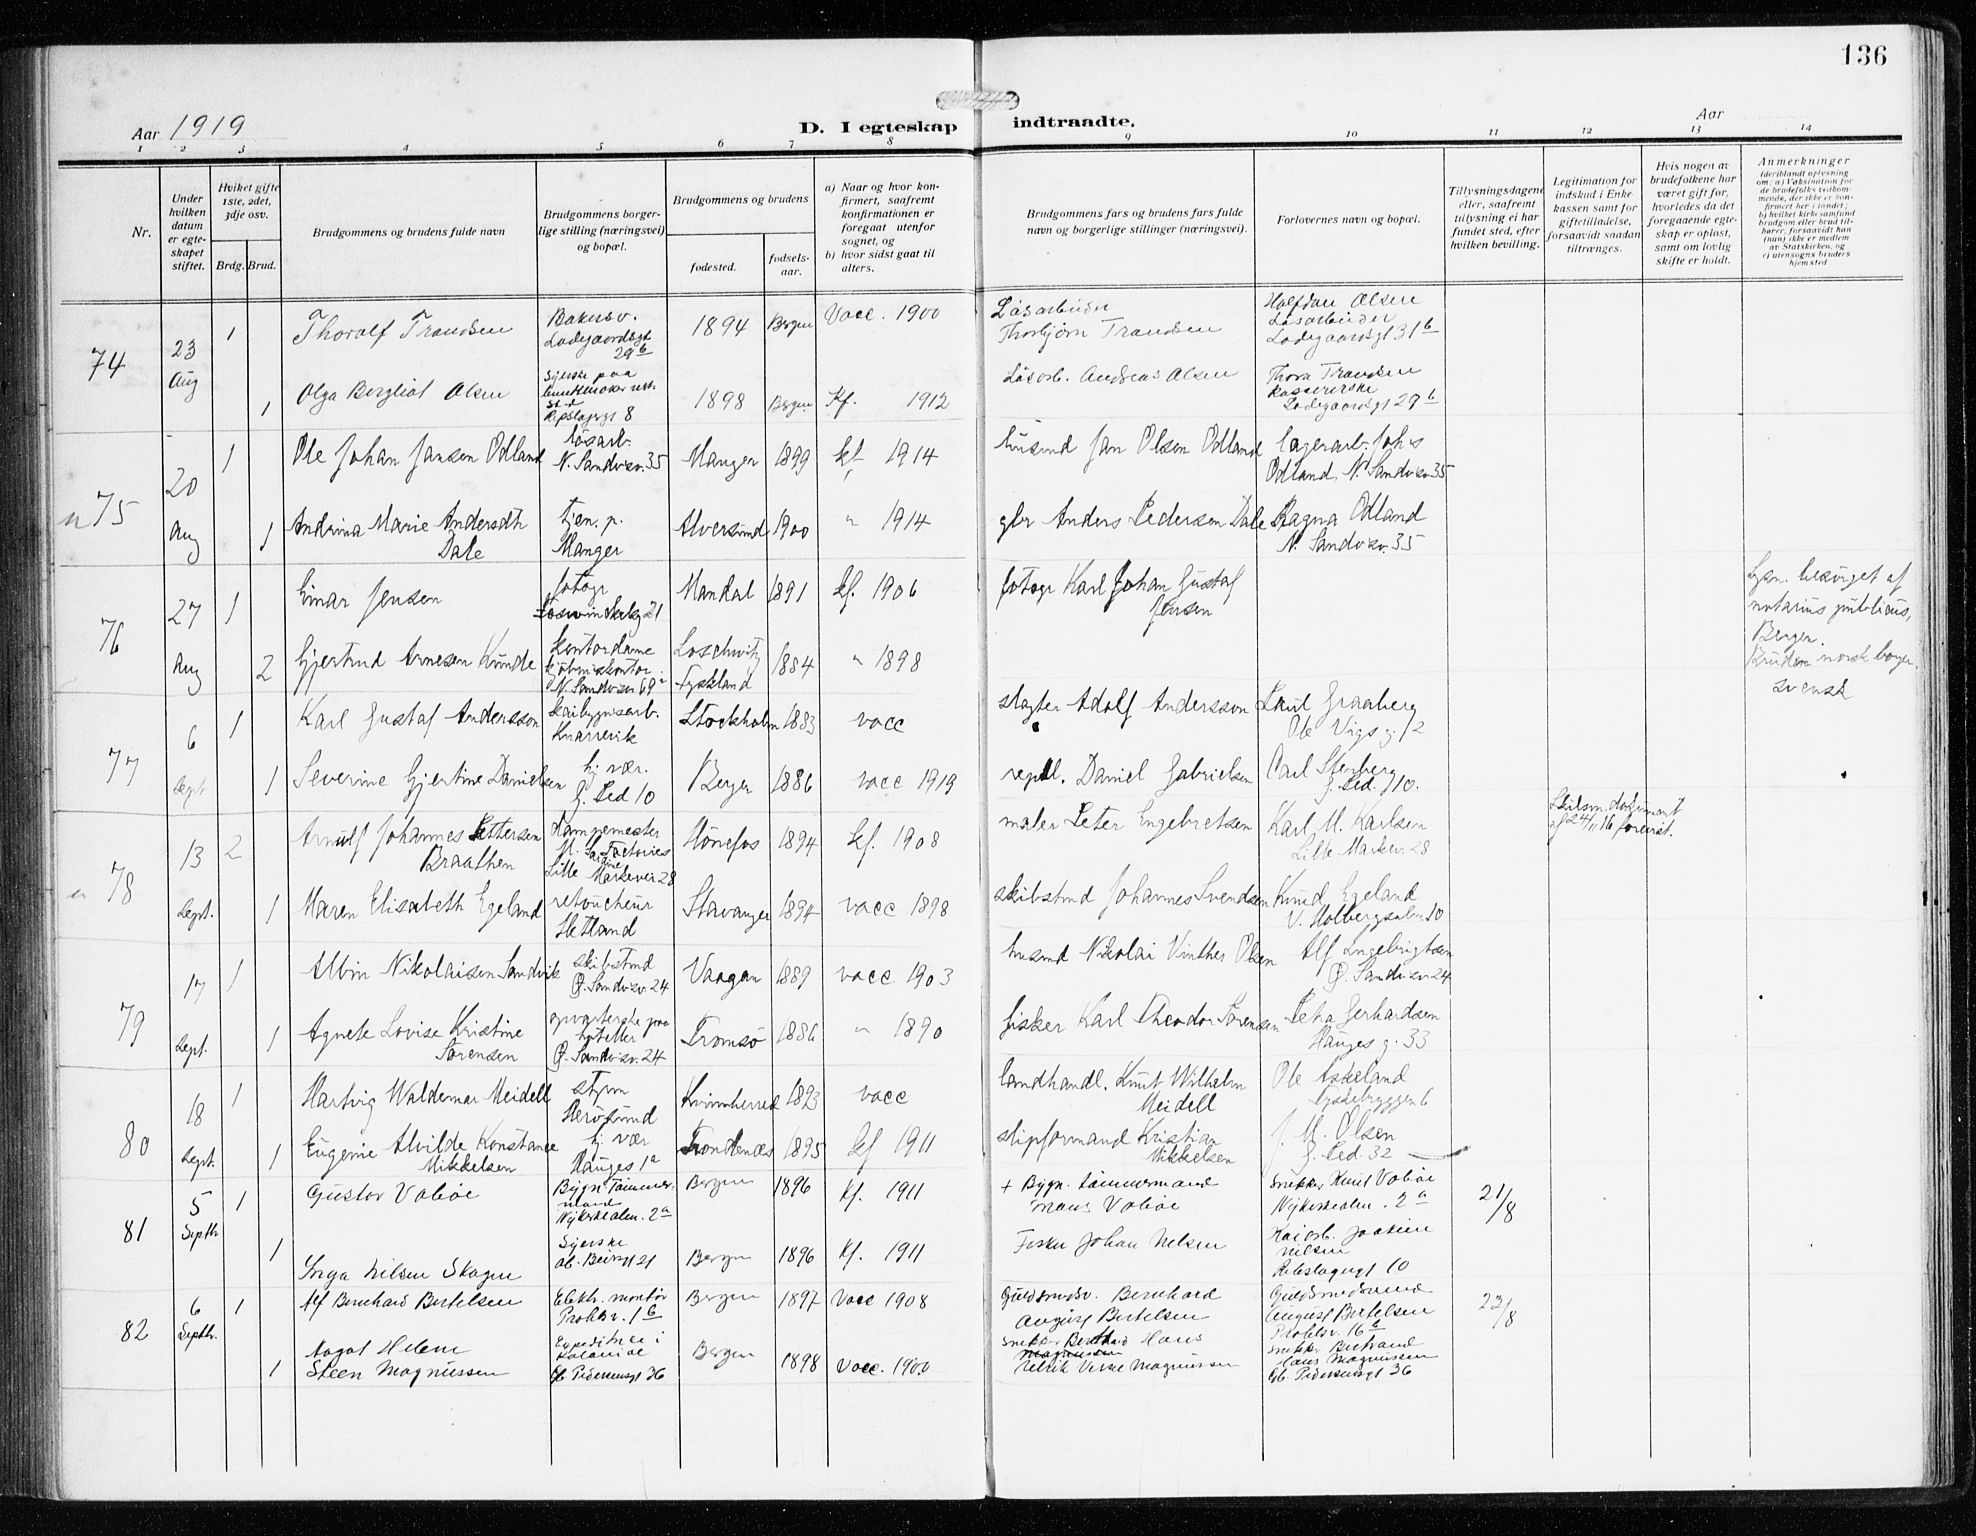 136
Aar 1919
D. I egteskap indtraadte.
Aar
1 2 3 4 5 6 7 8 9 10 11 12 13 14
Nr.
Under hvilken datum er egte-skapet stiftet.
Hviket gifte 1ste, 2det, 3dje osv.
Brdg. Brud.
Brudgommens og brudens fulde navn
Brudgommens borger-lige stilling (næringsvei) og bopæl.
Brudgommens og brudens
fødested.
fødsels-aar.
a) Naar og hvor kon-firmert, saafremt konfirmationen er foregaat utenfor sognet, og
b) hvor sidst gaat til alters.
Brudgommens fars og brudens fars fulde navn og borgerlige stillinger (næringsvei).
Forlovernes navn og bopæl.
Tillysningsdagene eller, saafremt tillysning ei har fundet sted, efter hvilken bevilling.
Legitimation for indskud i Enke-kassen samt for giftetilladelse, forsaavidt saadan tiltrænges.
Hvis nogen av brudefolkene har været gift før, hvorledes da det foregaaende egte-skap er opløst, samt om lovlig skifte er holdt.
Anmerkninger
(deriblandt oplysning om: a) Vaksination for de brudefolks vedkom-mende, der ikke er kon-firmert her i landet; b) hvilket kirkesamfund brudgom eller brud til-hører, forsaavidt han (hun) ikke er medlem av Statskirken, og c) utensogns bruders hjemsted
74 23 Aug 1 Thoralf Trandsen
Ladegaardsgt 29 b
1894 Bergen Vacc. 1900
Løsarbeider
Thorbjørn Trandsen
Halfdan Olsen
Løsarbeider
Ladegaardsgt 31 b
1 Olga Bergliot Olsen
Syerske paa
1898 Bergen Kf. 1912
Løsarb. Andreas Olsen
Thora Trandsen
Kassererske
Ladegaardsgt 29 b
75 20 Aug 1 Ole Johan Jansen Odland
løsarb.
N. Sandvkv. 35
Manger 1899 kf. 1914
husmd Jan Olsen Odland
lagerarb. Johs
Odland, N. Sandvkv. 35
1 Andrina Marie Andersdtr
Dale
tjen. p.
Manger
Alversund 1900 " 1914
gbr Anders Pedersen Dale
Ragna Odland
N. Sandvkv. 35
76 27 Aug 1 Einar Jensen
fotogr
Mandal 1891 kf. 1906
fotogr Karl Johan Gustaf
Jensen
Lysn. besørget af
notarius publicus,
Bergen.
Bruden norsk borger.
svensk
2 Gjertrud Arnesen Kunde
kontordame
N. Sandvkv 69 a
Loschwitz
Tyskland
1884 " 1898
77 6 Sept 1 Karl Gustaf Andersson
skibbygnsarb.
Knarrevik
Stockholm 1883 vacc
slagter Adolf Andersson
Paul Graaberg
Ole Vigs g. 12
1 Severine Gjertine Danielsen
hj. vær.
J. Ped 10
Bergen 1886 vacc 1919
repsl. Daniel Gabrielsen
Carl Stenberg
J. Ped. g 10.
78 13 Sept. 2 Arnulf Johannes Pettersen
Braathen
Lille Markevei 28
Hønefos 1894 kf. 1908
maler Peter Engebretsen
Karl M. Karlsen
Lille Markev 28
Skilsm. dokument
af 24/11 16 forevist.
1 Maren Elisabeth Egeland
retoucheur
Hetland
Stavanger 1894 vacc 1898
skibstmd Johannes Svendsen
Knud Egeland
V. Holbergsalm 10
79 17 Sept. 1 Albin Nikolaisen Sandvik
skibstmd
Ø. Sandvkv. 24
Vaagan 1889 vacc 1903
husmd Nikolai Vinther Olsen
Alf Engebrigtsen
Ø. Sandvkv. 24
1 Agnete Lovise Kristine
Sørensen
opvarterske paa
hotel
Ø. Sandvkv. 24
Tromsø 1886 " 1890
fisker Karl Theodor Sørensen
Petra Gerhardsen
Hauges g. 33
80 18 Sept. 1 Hartvig Waldemar Meidell
styrm
Herøsund
Kvinnherred 1893 vacc
landhandl. Knut Wilhelm
Meidell
Ole Askeland
Tyskebryggen 6
1 Eugenie Alvilde Konstance
Mikkelsen
hj. vær
Hauges 1 a
Trondenæs 1895 kf 1911
stipformand Kristian
Mikkelsen
J. M. Olsen
J. Ped. 32
81 5 Septbr 1 Gustav Valøe
Bygn. Tømmer-
mand
Nykirkealm. 2 a
Bergen 1896 Kf. 1911
+ Bygn. tømmermand
Mons Valøe
Snekker Knut Valøe
Nykirkealm. 2 a
21/8
1 Inga Nilsen Skagen
Syerske
Bergen 1896 Kf. 1911
Fisker Johan Nilsen
Kaiarb. Joakim
Nilsen
Repslagergt 10
82 6 Septbr. 1 Alf Bernhard Bertelsen
Elektr. montør
Bergen 1897 Vacc 1908
Guldsmedsv. Bernhard
August Bertelsen
Guldsmedsvend
August Bertelsen
23/8
1 Aagot Helene
Steen Magnussen
Expeditrice i
Bergen 1898 Vacc. 1900
Snekker Bertrand Hans
Magnussen
Snekker Bertrand
Hans Magnussen
Gb. Pedersensgt 36